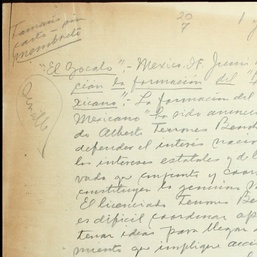 Tamaño
carta - por
20
7
1
"El Zocalo".- Mexico. D.F. Junio
ción la formación del "
xicano".- La formación del
Mexicano" ha sido anuncia
do Alberto Terrones Benít
defender el interés nacion
los intereses estatales y de l
vada que conjunta y coor
constituyen la genuina
El licenciado Terrones Be
es difícil coordinar
tener ideas para llegar a
miento que implique acci